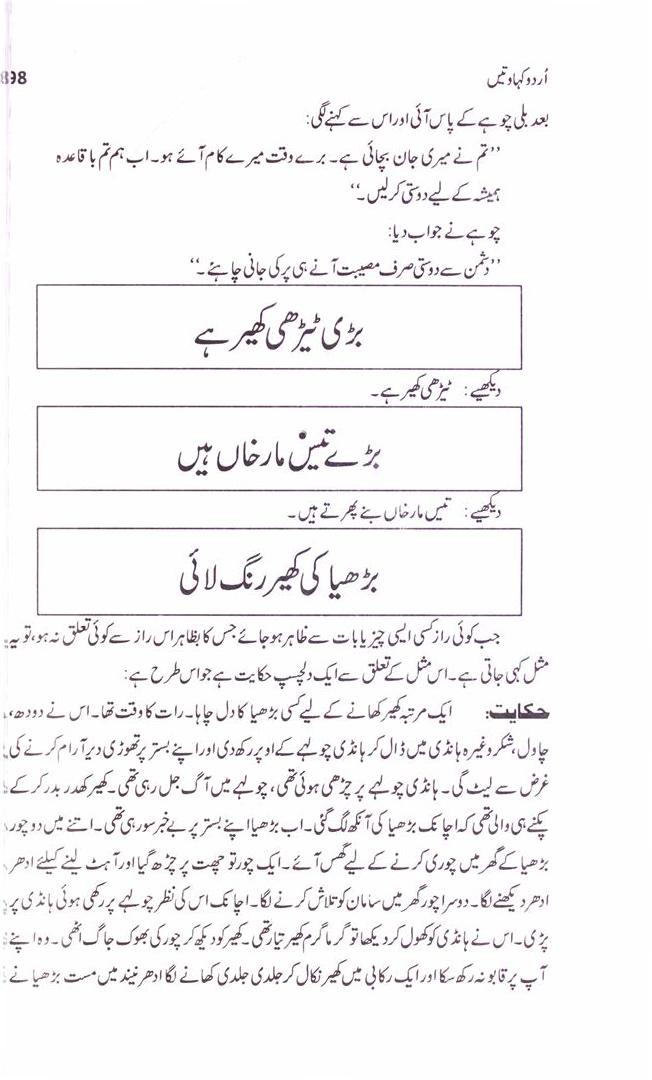 اُردو کہاوتیں 98
بعد بلی چوہے کے پاس آئی اور اس سے کہنے لگی:
’’تم نے میری جان بچائی ہے۔ برے وقت میرے کام آئے ہو۔ اب ہم تم باقاعدہ
ہمیشہ کے لیے دوستی کر لیں۔‘‘
چوہے نے جواب دیا:
’’دشمن سے دوستی صرف مصیبت آنے ہی پر کی جانی چاہئے۔‘‘
بڑی ٹیڑھی کھیر ہے
دیکھیے: ٹیڑھی کھیر ہے۔
بڑے تیس مار خاں ہیں
دیکھیے: تیس مار خاں بنے پھرتے ہیں۔
بڑھیا کی کھیر رنگ لائی
جب کوئی راز کسی ایسی چیز یا بات سے ظاہر ہو جائے جس کا بظاہر اس راز سے کوئی تعلق نہ ہو، تو یہ
مثل کہی جاتی ہے۔ اس مثل کے تعلق سے ایک دلچسپ حکایت ہے جو اس طرح ہے:
حکایت: ایک مرتبہ کھیر کھانے کے لیے کسی بڑھیا کا دل چاہا۔ رات کا وقت تھا۔ اس نے دودھ،
چاول، شکر وغیرہ ہانڈی میں ڈال کر ہانڈی چولہے کے اوپر رکھ دی اور اپنے بستر پر تھوڑی دیر آرام کرنے کی
غرض سے لیٹ گی۔ ہانڈی چولہے پر چڑھی ہوئی تھی، چولہے میں آگ جل رہی تھی۔ کھیر کھدر بدر کر کے
پکنے ہی والی تھی کہ اچانک بڑھیا کی آنکھ لگ گئی۔ اب بڑھیا اپنے بستر پر بے خبر سو رہی تھی۔ اتنے میں دو چور
بڑھیا کے گھر میں چوری کرنے کے لیے گھس آئے۔ ایک چور تو چھت پر چڑھ گیا اور آہٹ لینے کیلئے ادھر
ادھر دیکھنے لگا۔ دوسرا چور گھر میں سامان کو تلاش کرنے لگا۔ اچانک اس کی نظر چولہے پر رکھی ہوئی ہانڈی پر
پڑی۔ اس نے ہانڈی کو کھول کر دیکھا تو گرما گرم کھیر تیار تھی۔ کھیر کو دیکھ کر چور کی بھوک جاگ اٹھی۔ وہ اپنے
آپ پر قابو نہ رکھ سکا اور ایک رکابی میں کھیر نکال کر جلدی جلدی کھانے لگا ادھر نیند میں مست بڑھیا نے